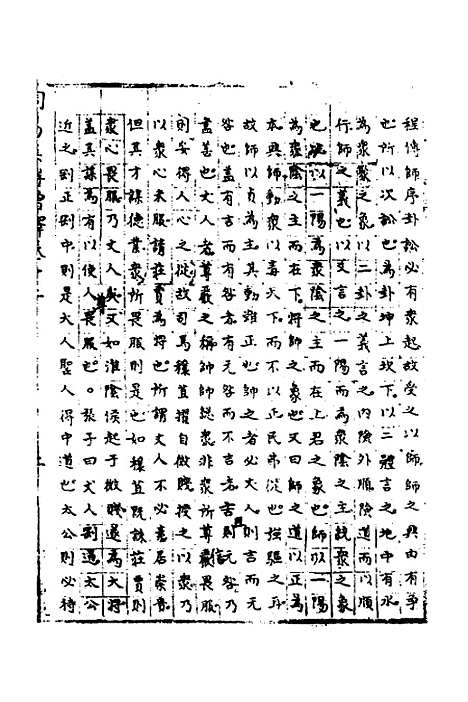 程傳師序卦訟必有衆起故受之以師師之興由有爭
也所以次訟也為卦坤上坎下以二體言之地中有水
為衆聚之象以二卦之義言之内險外順險道而以順
行師之義也以爻言之一陽而為衆陰之主統衆之象
也比以一陽為衆陰之主而在上君之象也師以一陽
為衆陰之主而在下將師之象也又曰師之道以正為
本興師動衆以毒天下而不以正民弗從也強驅之耳
故師以貞為主其動雖正也帥之者必丈人則吉而无
咎也盖有吉而有咎者有无咎而不吉者吉則无咎乃
盡善也丈人者尊嚴之稱帥師緫衆非衆所尊嚴畏服
則安得人心之從故司馬穰苴擢自微賤授之以衆乃
以衆心未服請莊賈為將也所謂丈人不必素居崇貴
但其才謀德業衆所畏服則是也如穰苴既誅莊賈則
衆心畏服乃丈人矣又如淮陰侯起于微賤遂為大將
盖其謀為有以使人尊畏服也。張子曰丈人剛過太公
近之剛正剛中則是大人聖人得中道也太公則必待